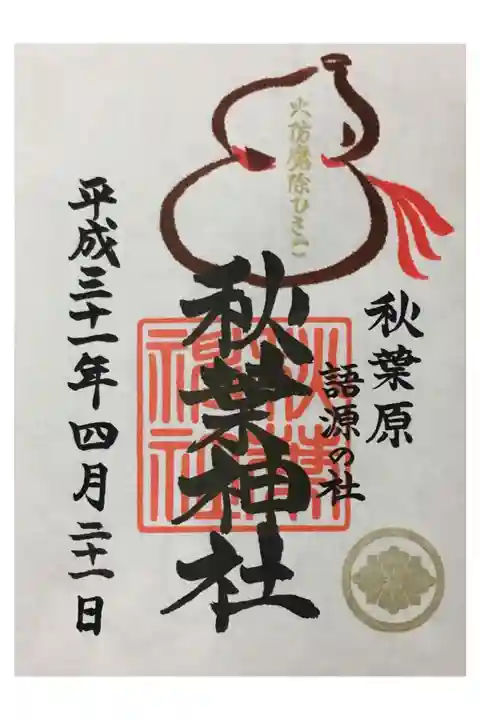 火防魔除ひさご
秋葉原
語源の社
秋葉神社
秋葉神社
平成三十一年四月二十一日